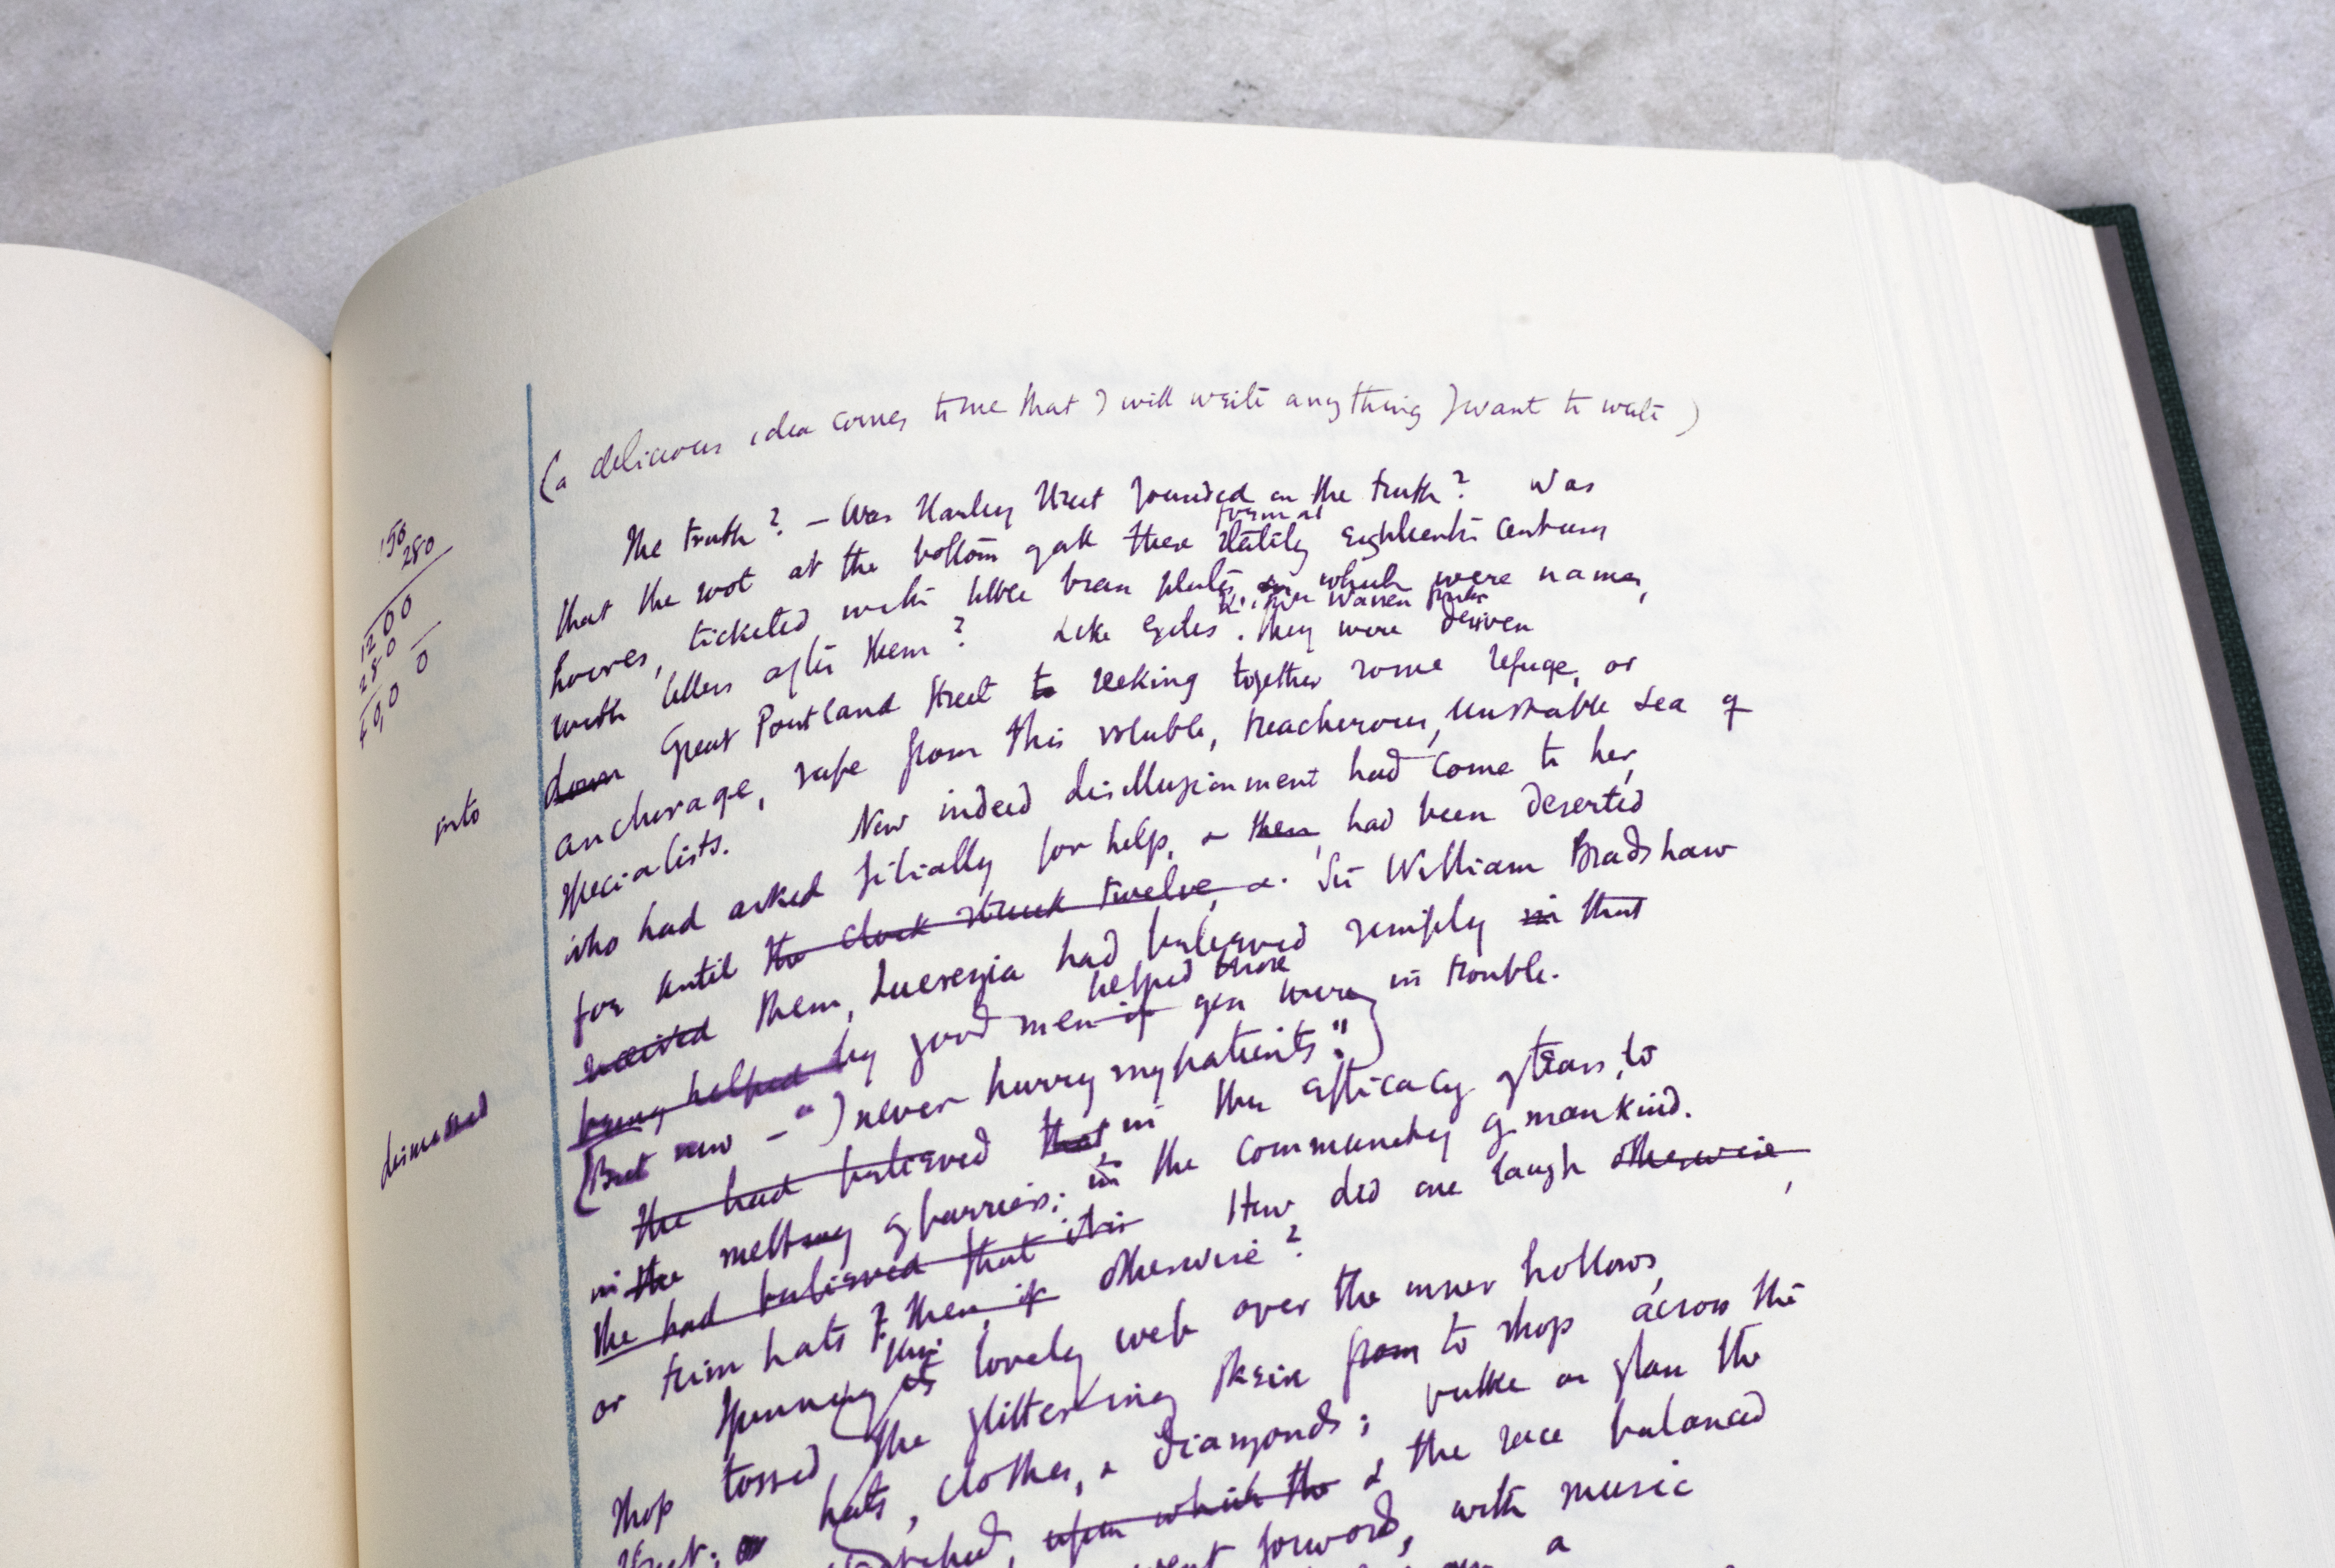 (a delicious idea comes to me that I will write anything I want to write)
The truth? — Was Harley Street founded on the truth? Was
formal
that the root at the bottom of all these stately eighteenth century
houses, ticketed with little brass plates, on which were names,
with letters after them? Like exiles. they were driven
down Great Portland Street to seeking together some refuge, or
anchorage, safe from this voluble, treacherous, unstable sea of
specialists. Now indeed disillusionment had come to her,
who had asked filially for help, & then had been deserted
for until the clock struck twelve, & Sir William Bradshaw
received them, Lucrezia had believed simply in that
helped those
being helped by good men if you were in trouble.
(But now — "I never hurry my patients".)
She had believed that in the efficacy of tears, to
in the melting of barriers; in the community of mankind.
She had believed that it is How did one laugh otherwise,
or trim hats? then, if otherwise?
this
Spinning its lovely web over the inner hollows,
shop tossed the glittering skein from to shop across the
Street; hats, clothes, & diamonds; glass the
upon which the & the race balanced
went forward, with music
a
150
280
1200
280
0
into
dismissed